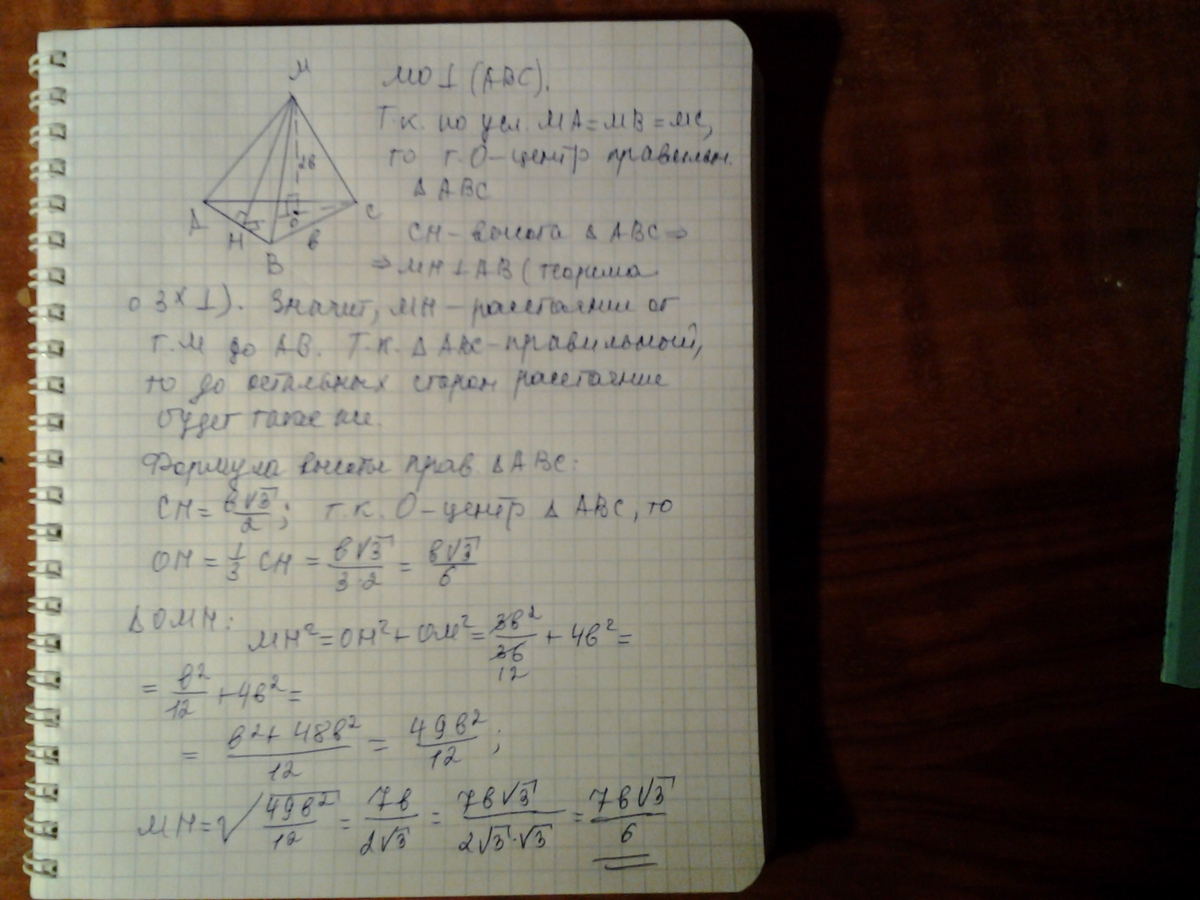 M
2в
A
H
O
C
в
B
MO ⊥ (ABC).
Т.к. по усл. MA = MB = MC,
то т. O – центр правильн.
Δ ABC
CH – высота Δ ABC ⇒
⇒ MH ⊥ AB (теорема
о 3х ⊥). Значит, MH – расстояние от
т. M до AB. Т.к. Δ ABC – правильный,
то до остальных сторон расстояние
будет такое же.
Формула высоты прав. Δ ABC:
CH = в√3/2; т.к. O – центр Δ ABC, то
OH = 1/3 CH = в√3/3·2 = в√3/6
Δ OMH:
MH² = OH² + OM² = 3в²/36 + 4в² =
12
= в²/12 + 4в² =
= в² + 48в²/12 = 49в²/12;
MH = √49в²/12 = 7в/2√3 = 7в√3/2√3·√3 = 7в√3/6